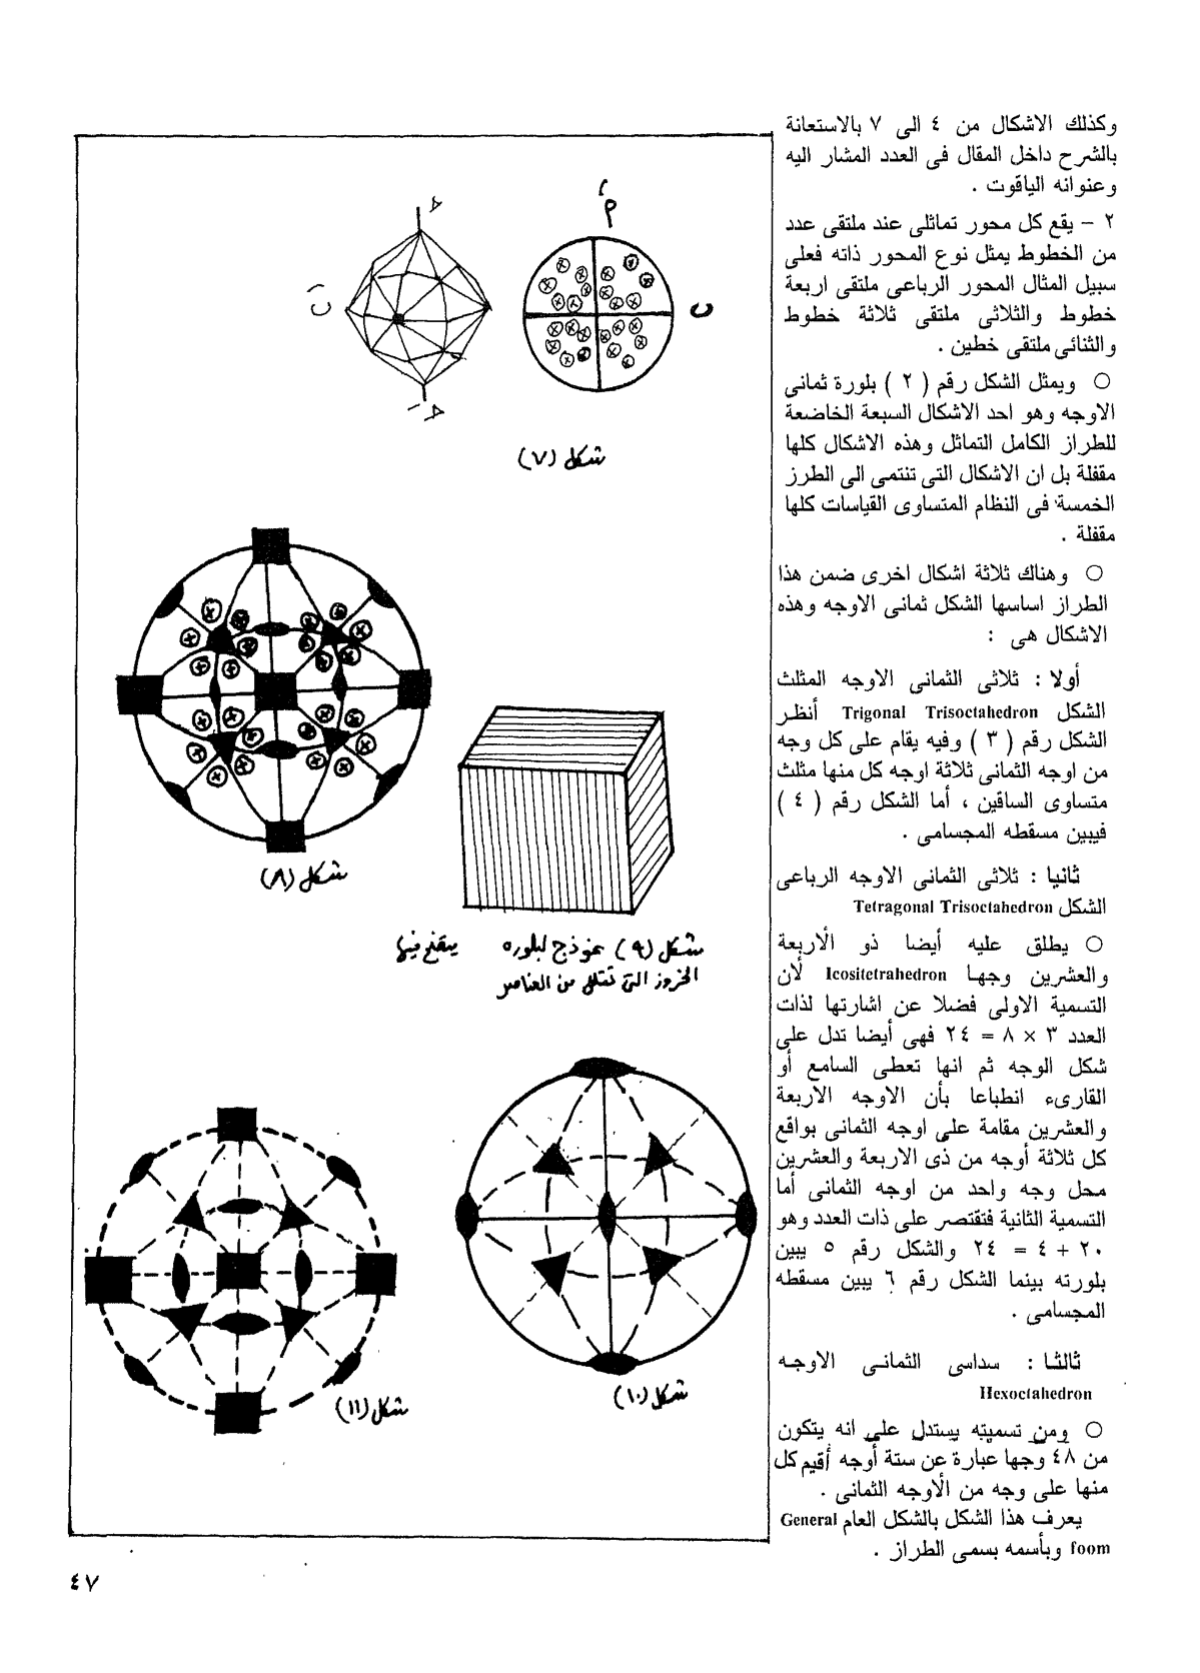 وكذلك الاشكال من ٤ الى ٧ بالاستعانة
بالشرح داخل المقال فى العدد المشار اليه
وعنوانه الياقوت .
٢ – يقع كل محور تماثلى عند ملتقى عدد
من الخطوط يمثل نوع المحور ذاته فعلى
سبيل المثال المحور الرباعى ملتقى اربعة
خطوط والثلاثى ملتقى ثلاثة خطوط
والثنائى ملتقى خطين .
○ ويمثل الشكل رقم ( ٢ ) بلورة ثمانى
الاوجه وهو احد الاشكال السبعة الخاضعة
للطراز الكامل التماثل وهذه الاشكال كلها
مقفلة بل ان الاشكال التى تنتمى الى الطرز
الخمسة فى النظام المتساوى القياسات كلها
مقفلة .
○ وهناك ثلاثة اشكال اخرى ضمن هذا
الطراز اساسها الشكل ثمانى الاوجه وهذه
الاشكال هى :
أولا : ثلاثى الثمانى الاوجه المثلث
الشكل Trigonal Trisoctahedron أنظر
الشكل رقم ( ٣ ) وفيه يقام على كل وجه
من اوجه الثمانى ثلاثة اوجه كل منها مثلث
متساوى الساقين ، أما الشكل رقم ( ٤ )
فيبين مسقطه المجسامى .
ثانيا : ثلاثى الثمانى الاوجه الرباعى
الشكل Tetragonal Trisoctahedron
○ يطلق عليه أيضا ذو الأربعة
والعشرين وجها Icositetrahedron لأن
التسمية الاولى فضلا عن اشارتها لذات
العدد ٣ × ٨ = ٢٤ فهى أيضا تدل على
شكل الوجه ثم انها تعطى السامع أو
القارىء انطباعا بأن الاوجه الاربعة
والعشرين مقامة على اوجه الثمانى بواقع
كل ثلاثة أوجه من ذى الاربعة والعشرين
محل وجه واحد من اوجه الثمانى أما
التسمية الثانية فتقتصر على ذات العدد وهو
٢٠ + ٤ = ٢٤ والشكل رقم ٥ يبين
بلورته بينما الشكل رقم ٦ يبين مسقطه
المجسامى .
ثالثا : سداسى الثمانى الاوجه
Hexoctahedron
○ ومن تسميته يستدل على انه يتكون
من ٤٨ وجها عبارة عن ستة أوجه أقيم كل
منها على وجه من الأوجه الثمانى .
يعرف هذا الشكل بالشكل العام General
foom وبأسمه يسمى الطراز .
شكل (٧)
شكل (٨)
شكل (٩) نموذج لبلوره يتضح فيها
الحزوز التى تتلل من العناصر
شكل (١٠)
شكل (١١)
٤٧